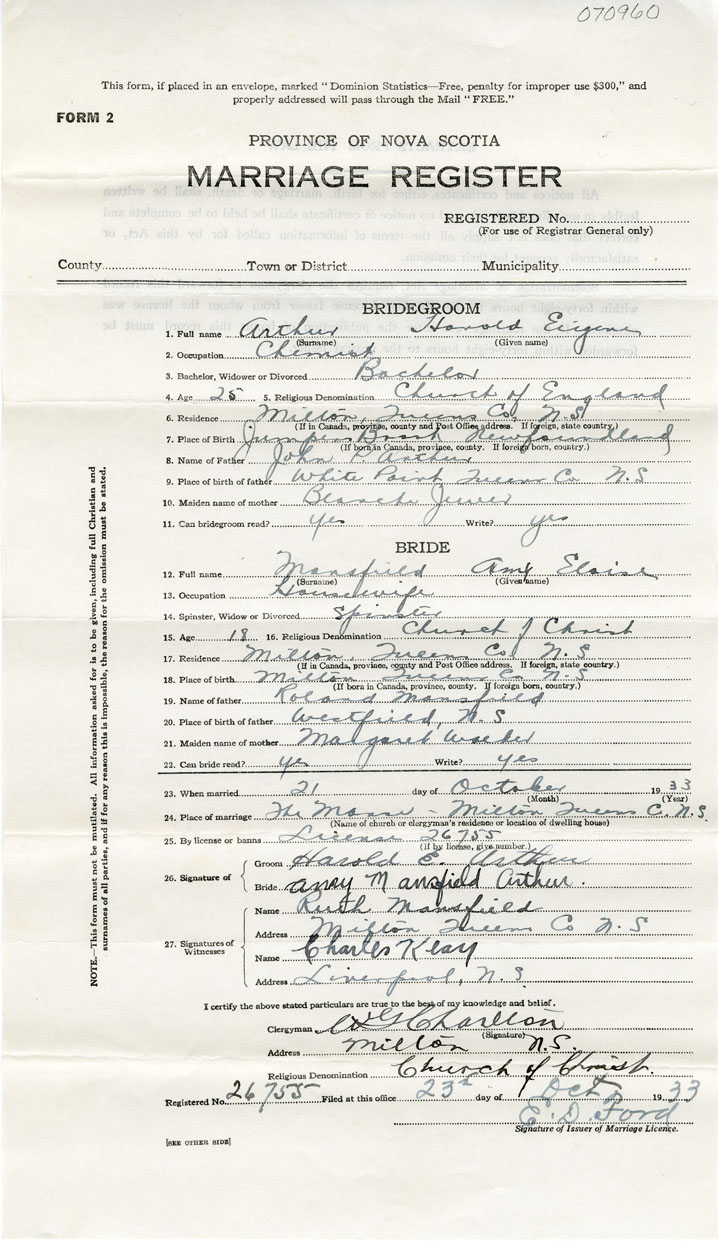 070960
This form, if placed in an envelope, marked "Dominion Statistics—Free, penalty for improper use $300," and
properly addressed will pass through the Mail "FREE."
FORM 2
PROVINCE OF NOVA SCOTIA
MARRIAGE REGISTER
REGISTERED No.
(For use of Registrar General only)
County Town or District Municipality
BRIDEGROOM
1. Full name Arthur Harold Eugene
(Surname) (Given name)
2. Occupation Chemist
3. Bachelor, Widower or Divorced Bachelor
4. Age 25 5. Religious Denomination Church of England
6. Residence Milton, Queens Co. N.S.
(If in Canada, province, county and Post Office address. If foreign, state country.)
7. Place of Birth Jumpers Brook Newfoundland
(If born in Canada, province, county. If foreign born, country.)
8. Name of Father John Arthur
9. Place of birth of father White Point Queens Co N.S
10. Maiden name of mother Blanche
11. Can bridegroom read? yes Write? yes
BRIDE
12. Full name Mansfield Amy Eloise
(Surname) (Given name)
13. Occupation Housewife
14. Spinster, Widow or Divorced Spinster
15. Age 18 16. Religious Denomination Church of Christ
17. Residence Milton, Queens Co. N.S
(If in Canada, province, county and Post Office address. If foreign, state country.)
18. Place of birth Milton Queens Co N.S
(If born in Canada, province, county. If foreign born, country.)
19. Name of father Roland Mansfield
20. Place of birth of father Westfield, N.S
21. Maiden name of mother Margaret
22. Can bride read? yes Write? yes
23. When married 21 day of October 1933
(Month) (Year)
24. Place of marriage The Manse - Milton Queens C. N.S.
(Name of church or clergyman's residence or location of dwelling house)
25. By license or banns License 26755
(If by license, give number.)
26. Signature of
Groom Harold E. Arthur
Bride Amy Mansfield Arthur.
27. Signatures of Witnesses
Name Ruth Mansfield
Address Milton Queens Co N.S
Name Charles Keay
Address Liverpool, N.S
I certify the above stated particulars are true to the best of my knowledge and belief.
Clergyman Charlton
(Signature)
Address Milton N.S.
Religious Denomination Church of Christ.
Registered No. 26755 Filed at this office 23rd day of Oct 1933
E. D. Ford
Signature of Issuer of Marriage Licence.
[SEE OTHER SIDE]
NOTE.—This form must not be mutilated. All information asked for is to be given, including full Christian and
surnames of all parties, and if for any reason this is impossible, the reason for the omission must be stated.